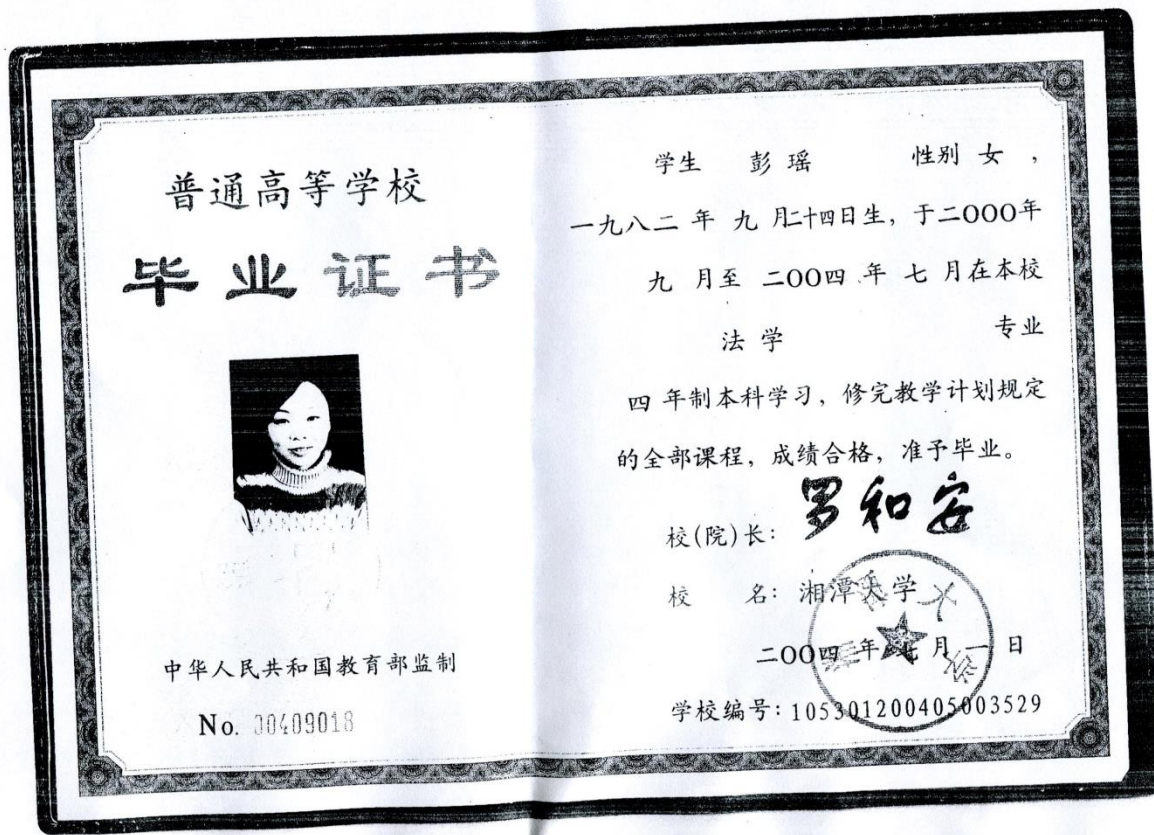 普通高等学校
毕业证书
中华人民共和国教育部监制
No. 00409018
学生 彭瑶 性别 女,
一九八二 年 九 月二十四日生, 于二OOO年
九 月至 二OO四 年 七 月在本校
法学 专业
四 年制本科学习, 修完教学计划规定
的全部课程, 成绩合格, 准予毕业。
校(院)长: 罗和安
校 名: 湘潭大学
二OO四 年 七 月 一 日
学校编号: 105301200405003529